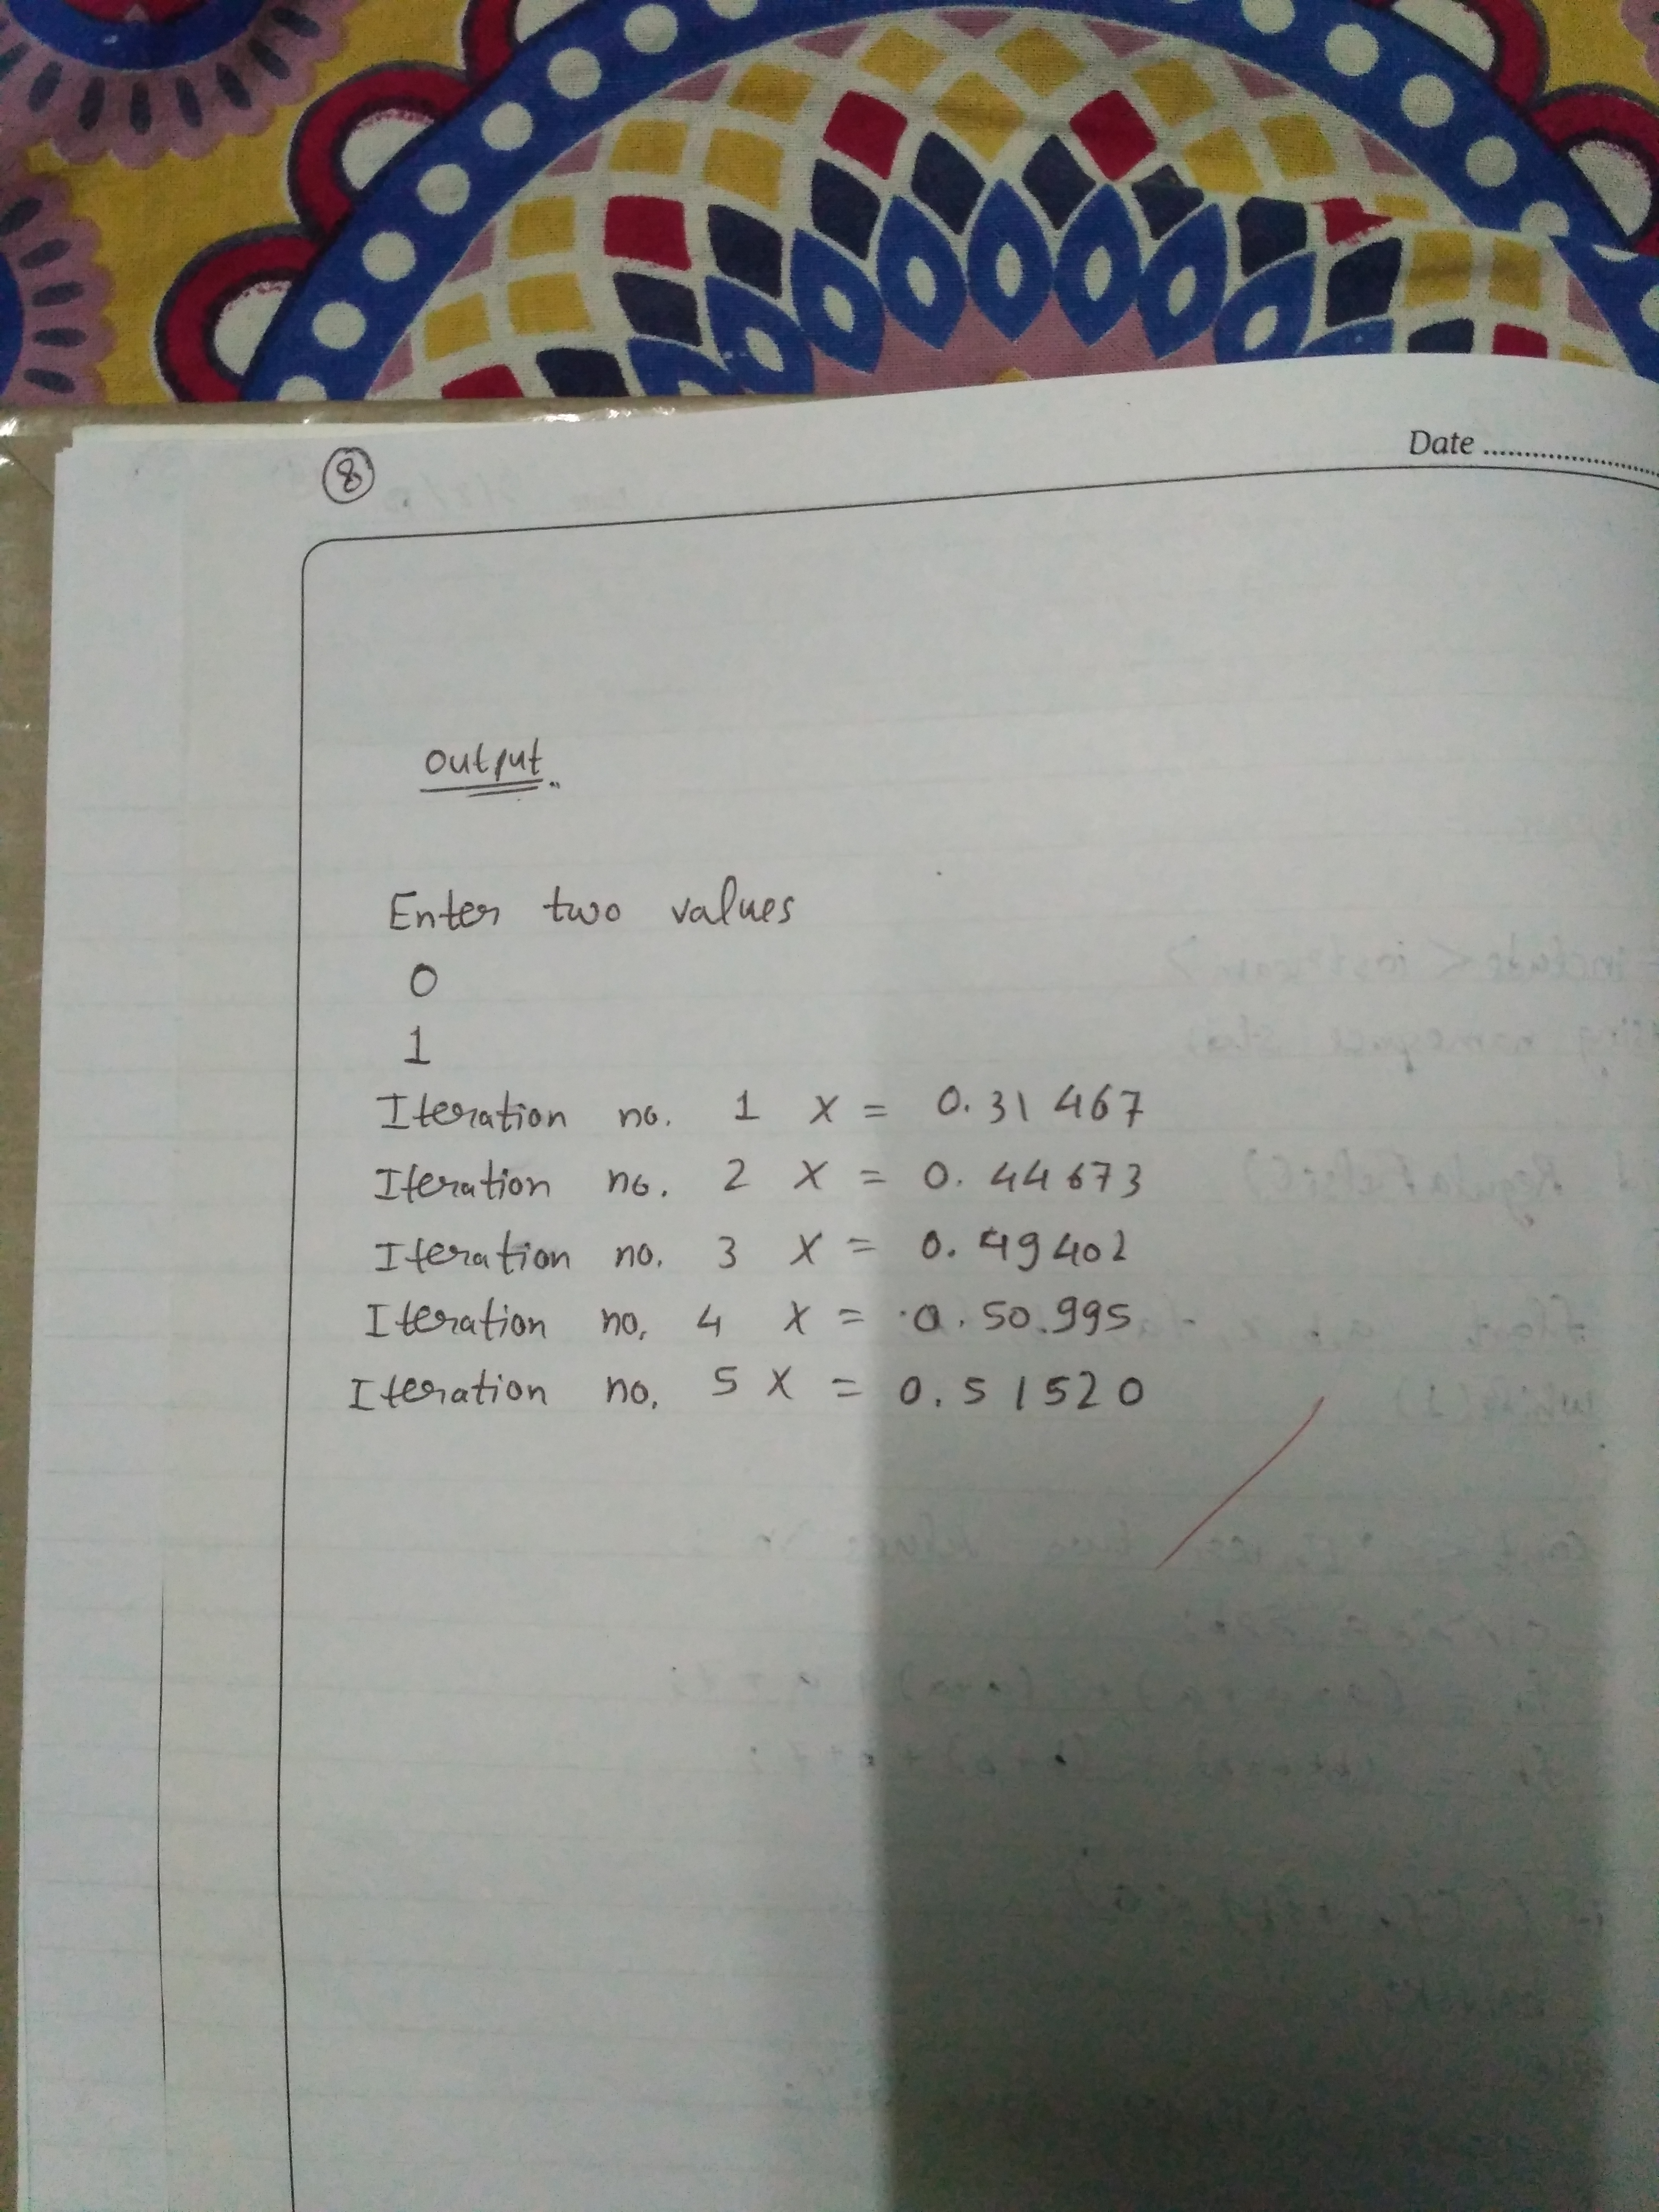 8
Date
Output
Enter two values
0
1
Iteration no. 1 X = 0.31467
Iteration no. 2 X = 0.44673
Iteration no. 3 X = 0.49402
Iteration no. 4 X = 0.50995
Iteration no. 5 X = 0.51520